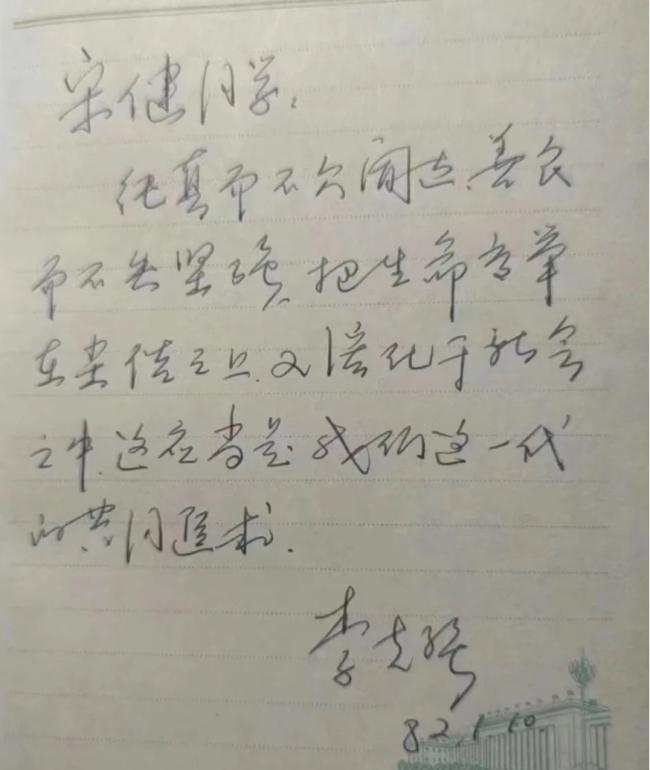 宋健同学:
纯真而不欠阔达,善良
而不失坚强,把生命高举
在尘俗之上,又溶化于社会
之中,这应当是我们这一代
的共同追求.
李克强
82.1.10.